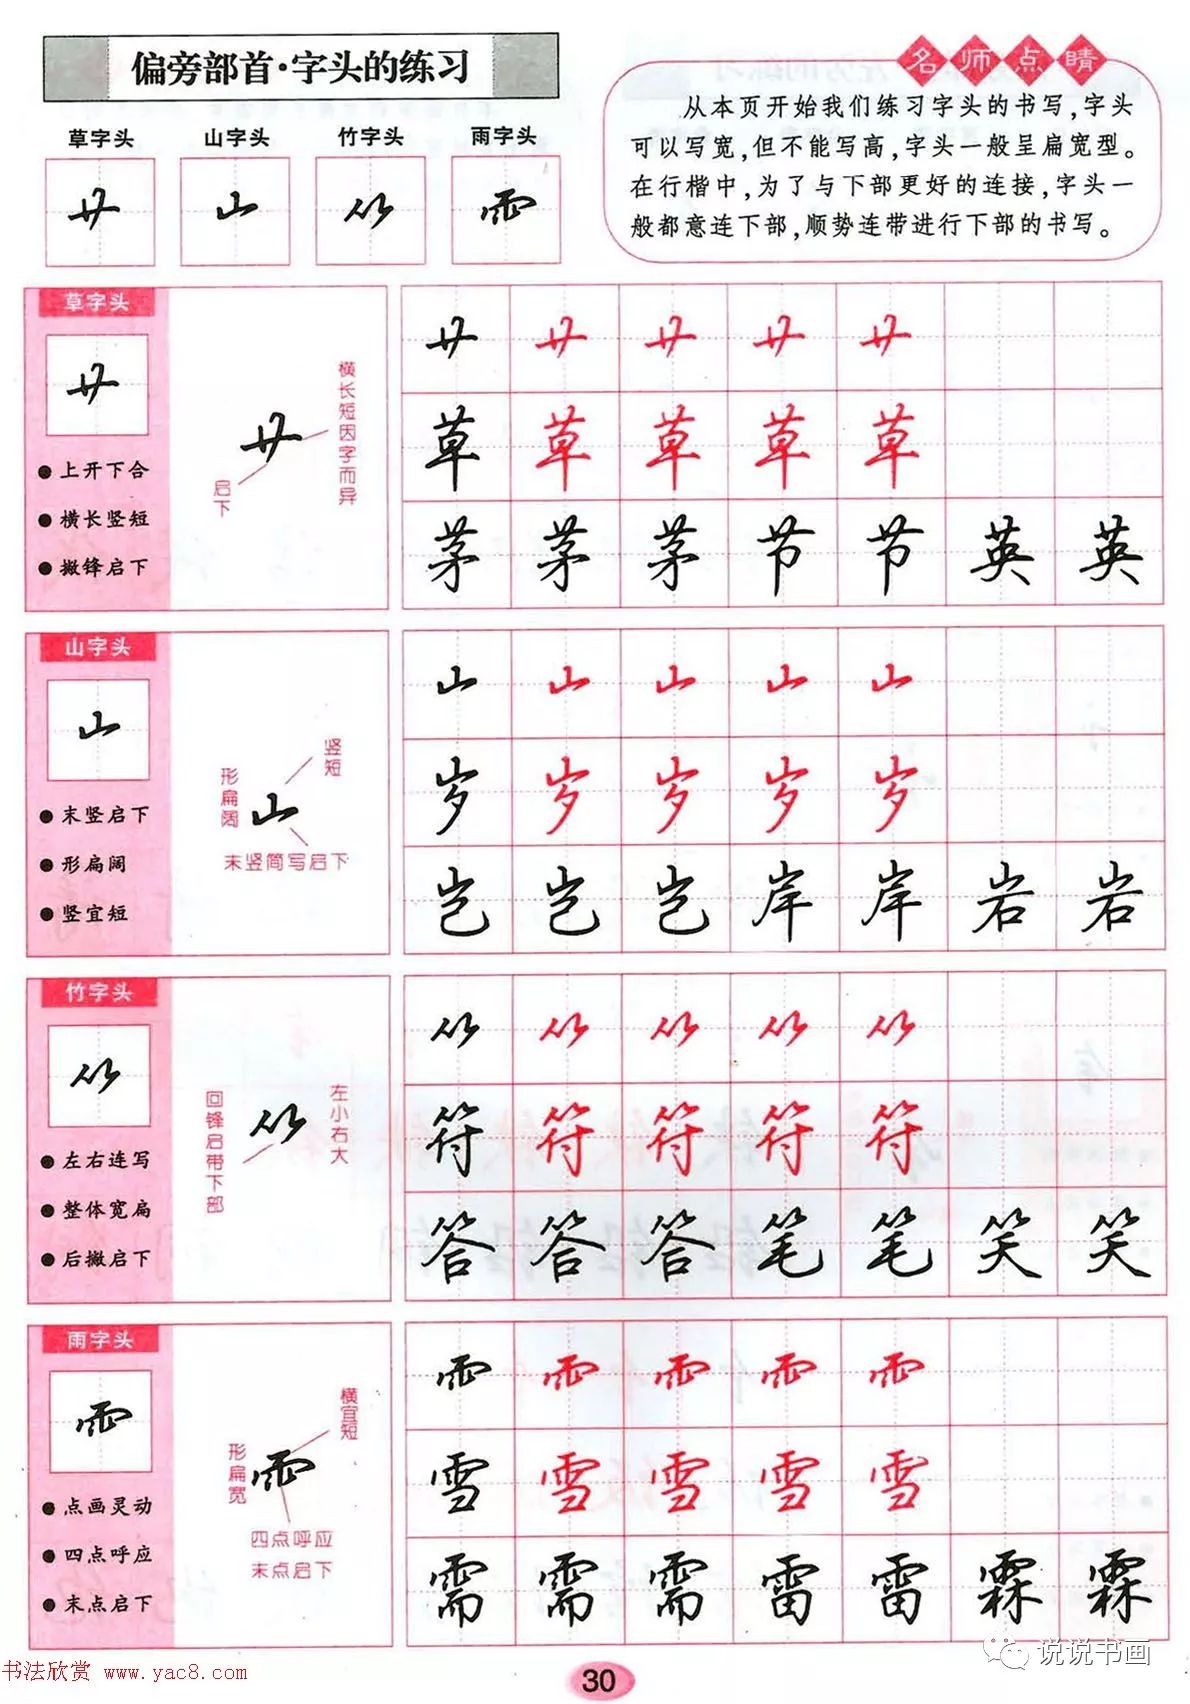 偏旁部首·字头的练习
名师点睛
从本页开始我们练习字头的书写,字头
可以写宽,但不能写高,字头一般呈扁宽型。
在行楷中,为了与下部更好的连接,字头一
般都意连下部,顺势连带进行下部的书写。
草字头 山字头 竹字头 雨字头
艹 山 𥫗 ⻗
草字头
艹
●上开下合
●横长竖短
●撇锋启下
横长短因字而异
艹
启下
艹 艹 艹 艹 艹
草 草 草 草 草
茅 茅 茅 节 节 英 英
山字头
山
●末竖启下
●形扁阔
●竖宜短
竖短
形扁阔
山
末竖简写启下
山 山 山 山 山
岁 岁 岁 岁 岁
岂 岂 岂 岸 岸 岩 岩
竹字头
𥫗
●左右连写
●整体宽扁
●后撇启下
左小右大
𥫗
回锋启带下部
𥫗 𥫗 𥫗 𥫗 𥫗
符 符 符 符 符
答 答 答 笔 笔 笑 笑
雨字头
⻗
●点画灵动
●四点呼应
●末点启下
横宜短
形扁宽
⻗
四点呼应
末点启下
⻗ ⻗ ⻗ ⻗ ⻗
雪 雪 雪 雪 雪
需 需 需 雷 雷 霖 霖
说说书画
书法欣赏 www.yac8.com
30